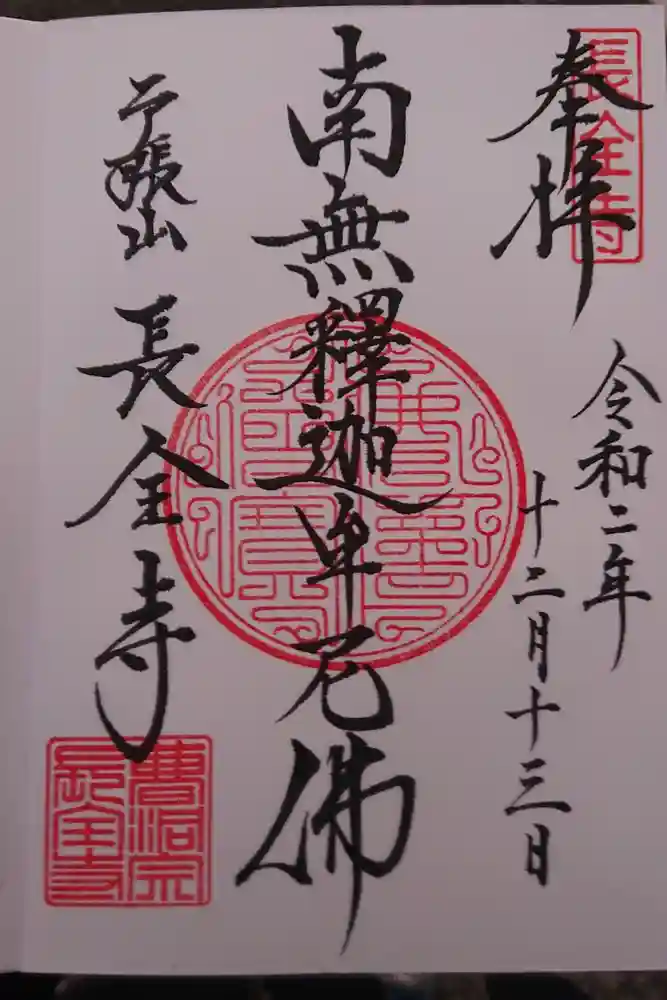 奉拝
長全寺
令和二年
十二月十三日
南無釋迦牟尼佛
長全寺
曹洞宗
長全寺